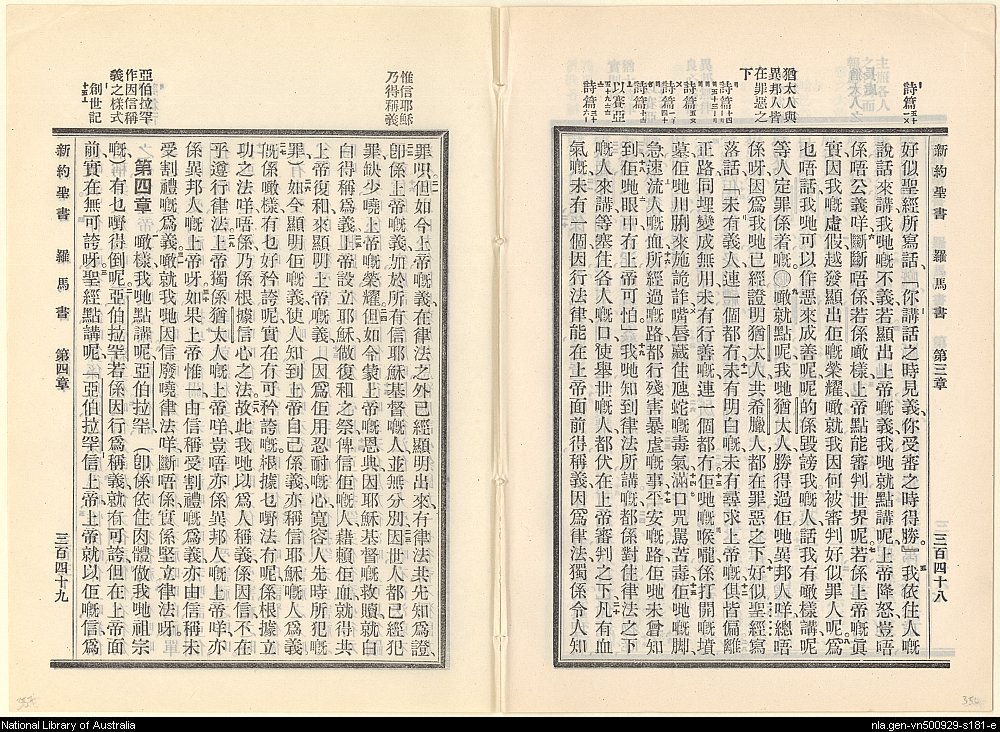 詩篇
詩篇
詩篇
詩篇
詩篇
詩篇
以賽亞
詩篇
猶太人與
異邦人皆
在罪惡之
下
新約聖書 羅馬書 第三章 三百四十八
好似聖經所寫話、「你講話之時見義、你受審之時得勝。」我依住人嘅
說話來講、我哋嘅不義若顯出上帝嘅義、我哋就點講呢、上帝降怒、豈唔
係唔公義咩、斷斷唔係、若係噉樣、上帝點能審判世界呢、若係上帝嘅眞
實、因我嘅虛假越發顯出佢嘅榮耀、噉就我因何被審判好似罪人呢、爲
乜唔話、我哋可以作惡來成善呢、呢的係毀謗我哋嘅人、話我有噉樣講呢
等人定罪係着嘅。○噉就點呢、我哋猶太人勝得過佢哋異邦人咩、總唔
係呀、因爲我哋已經證明猶太人共希臘人都在罪惡之下、好似聖經寫
落話、「未有義人、連一個都冇、未有明白嘅、未有尋求上帝嘅、俱皆偏離
正路、同埋變成無用、未有行善嘅、連一個都冇、佢哋嘅喉嚨係打開嘅墳
墓、佢哋用脷來施詭詐、嘴唇藏住虺蛇嘅毒氣、滿口咒罵苦毒、佢哋嘅脚
急速流人嘅血、所經過嘅路、都行殘害暴虐嘅事、平安嘅路、佢哋未曾知
到、佢哋眼中冇上帝可怕。」我哋知到律法所講嘅、都係對住律法之下
嘅人來講、等塞住各人嘅口、使舉世嘅人、都伏在上帝審判之下、凡有血
氣嘅、未有一個因行律法、能在上帝面前得稱義、因爲律法獨係令人知
惟信耶穌
乃得稱義
亞伯拉罕
作因信稱
義之樣式
創世記
罪呮。但如今上帝嘅義、在律法之外已經顯明出來、有律法共先知爲證、
卽係上帝嘅義、加於所有信耶穌基督嘅人、並無分別、因世人都已經犯
罪、缺少曉上帝嘅榮耀、但如今蒙上帝嘅恩典、因耶穌基督嘅救贖、就白
白得稱爲義、上帝設立耶穌、做復和之祭、俾信佢嘅人、藉賴佢血、就得共
上帝復和、來顯明上帝嘅義、因爲佢用忍耐嘅心、寬容人先時所犯嘅
罪)如今顯明佢嘅義、使人知到上帝自己係義、亦稱信耶穌嘅人爲義
嘅、係噉樣、有乜好矜誇呢、實在冇可矜誇嘅、根據乜嘢法冇呢、係根據立
功之法咩、唔係、乃係根據信心之法、故此我哋以爲人稱義、係因信、不在
乎遵行律法、上帝獨係猶太人嘅上帝咩、豈唔亦係異邦人嘅上帝咩、亦
係異邦人嘅上帝呀、如果上帝惟一、由信稱受割禮嘅爲義、亦由信稱未
受割禮嘅爲義、噉就我哋因信廢曉律法咩、斷唔係、實係堅立律法呀。
第四章 噉樣、我哋點講呢、亞伯拉罕、(卽係依住肉體、做我哋祖宗
嘅)有乜嘢得倒呢、亞伯拉罕若係因行爲稱義、就有可誇、但在上帝面
前、實在無可誇呀、聖經點講呢、「亞伯拉罕信上帝、上帝就以佢嘅信爲
新約聖書 羅馬書 第四章 三百四十九
National Library of Australia
nla.gen-vn500929-s181-e